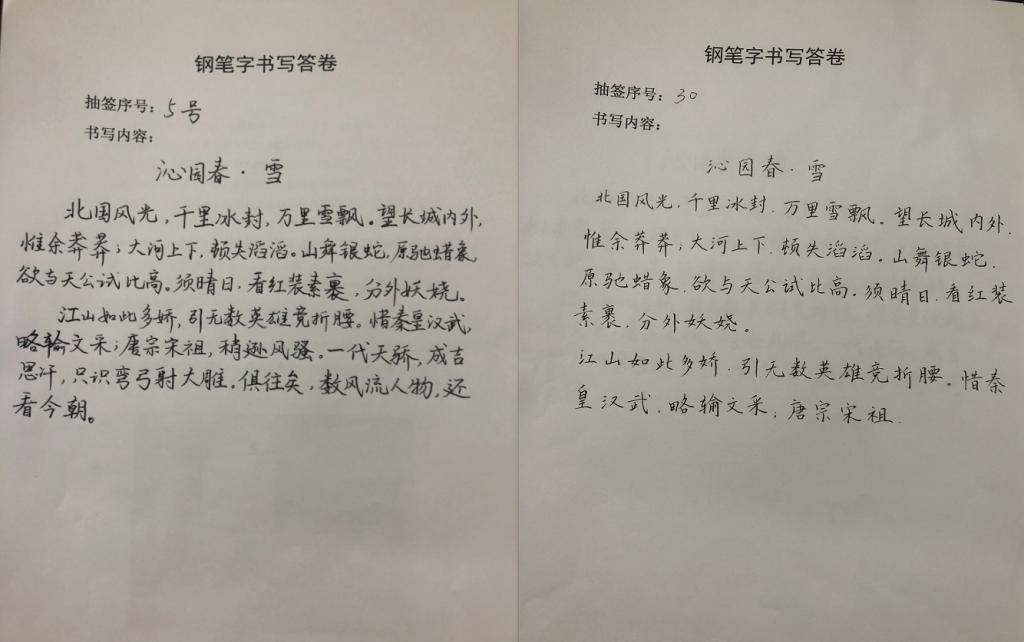 钢笔字书写答卷
抽签序号：5号
书写内容：
沁园春·雪
北国风光,千里冰封,万里雪飘。望长城内外,
惟余莽莽;大河上下,顿失滔滔。山舞银蛇,原驰蜡象,
欲与天公试比高。须晴日,看红装素裹,分外妖娆。
江山如此多娇,引无数英雄竞折腰。惜秦皇汉武,
略输文采;唐宗宋祖,稍逊风骚。一代天骄,成吉
思汗,只识弯弓射大雕。俱往矣,数风流人物,还
看今朝。
钢笔字书写答卷
抽签序号：30
书写内容：
沁园春·雪
北国风光,千里冰封,万里雪飘。望长城内外,
惟余莽莽;大河上下,顿失滔滔。山舞银蛇,
原驰蜡象,欲与天公试比高。须晴日,看红装
素裹,分外妖娆。
江山如此多娇,引无数英雄竞折腰。惜秦
皇汉武,略输文采;唐宗宋祖.